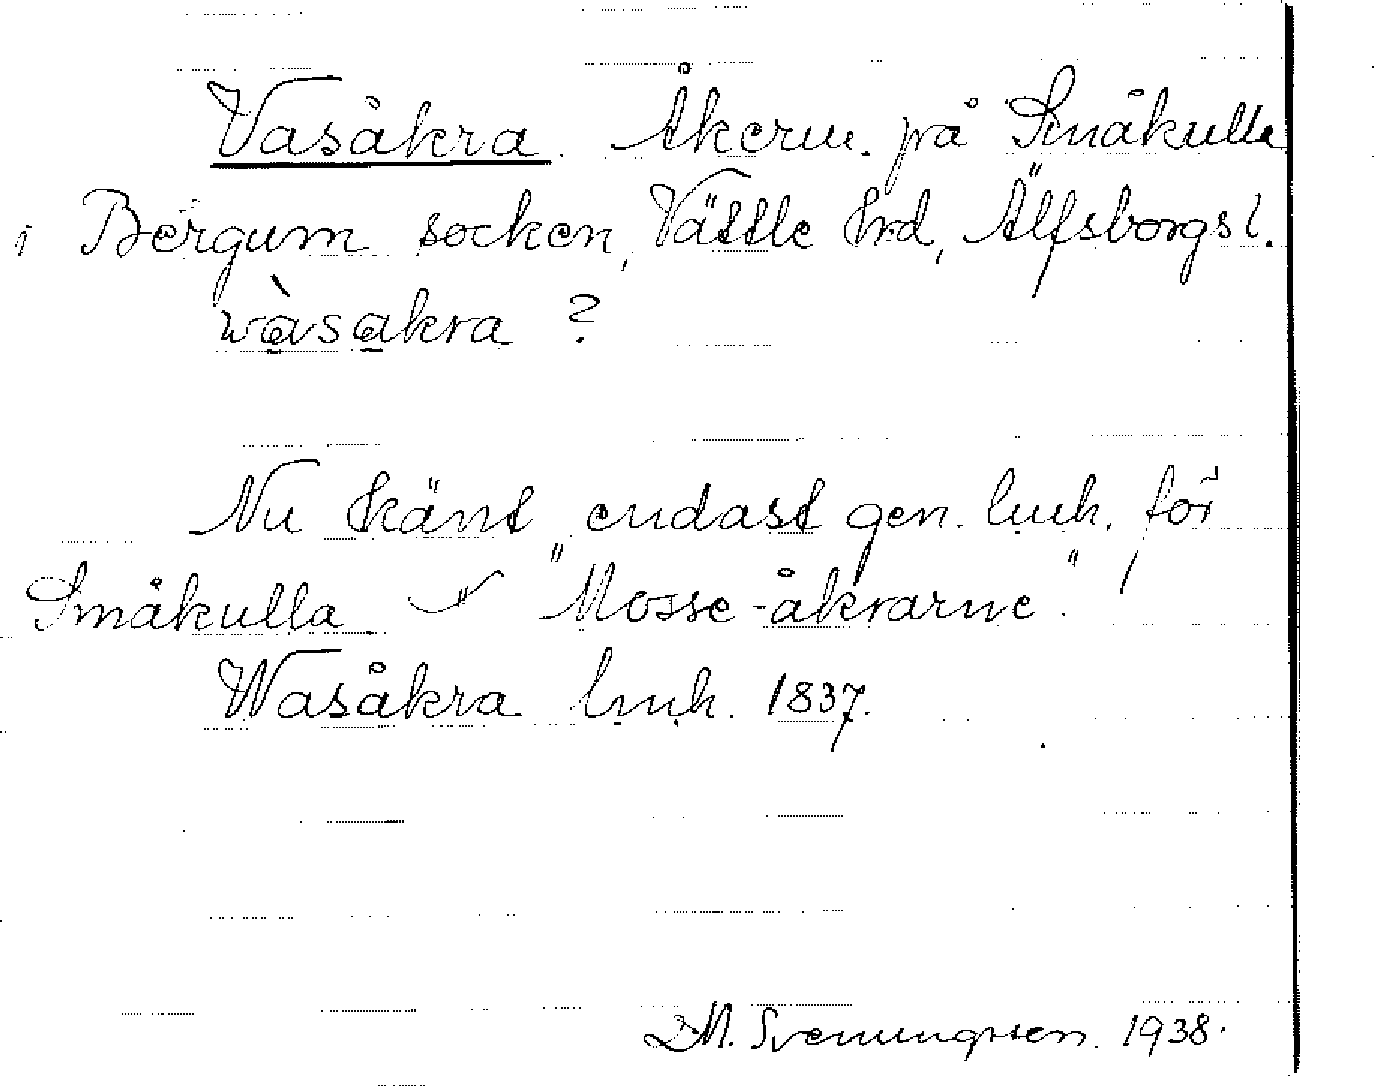 Vasåkra. Åkerm. på Småkulla
i Bergum socken, Vättle hrd, Älfsborgs l.
wàsakra ?
Nu känt endast gen. lmh. för
Småkulla "Mosse-åkrarne".
Wasåkra lmh. 1837.
D.M. Svenungsson. 1938.